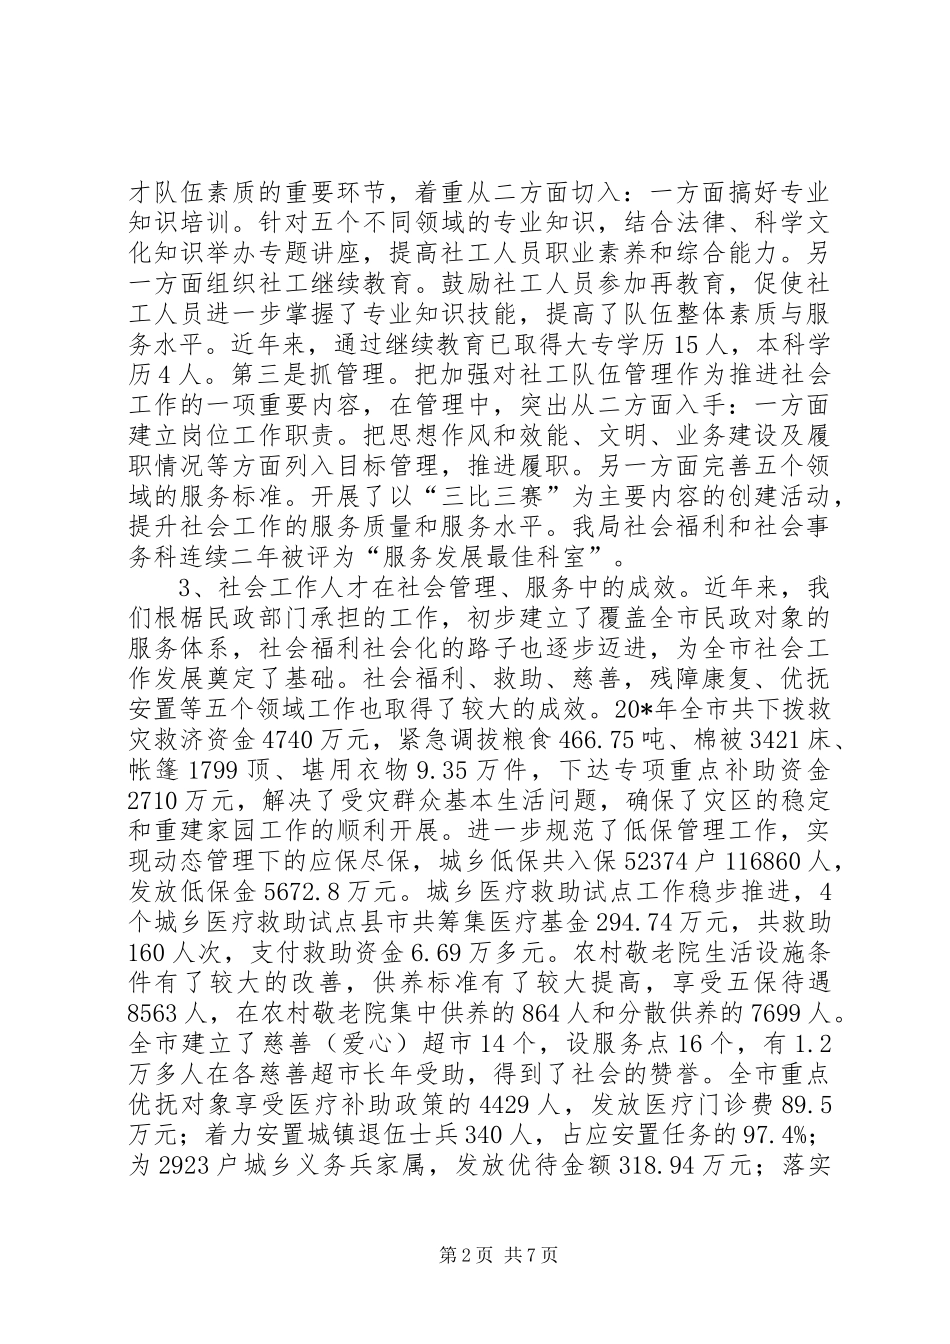 才队伍素质的重要环节，着重从二方面切入：一方面搞好专业
知识培训。针对五个不同领域的专业知识，结合法律、科学文
化知识举办专题讲座，提高社工人员职业素养和综合能力。另
一方面组织社工继续教育。鼓励社工人员参加再教育，促使社
工人员进一步掌握了专业知识技能，提高了队伍整体素质与服
务水平。近年来，通过继续教育已取得大专学历 15 人，本科学
历 4 人。第三是抓管理。把加强对社工队伍管理作为推进社会
工作的一项重要内容，在管理中，突出从二方面入手：一方面
建立岗位工作职责。把思想作风和效能、文明、业务建设及履
职情况等方面列入目标管理，推进履职。另一方面完善五个领
域的服务标准。开展了以“三比三赛”为主要内容的创建活动，
提升社会工作的服务质量和服务水平。我局社会福利和社会事
务科连续二年被评为“服务发展最佳科室”。
3、社会工作人才在社会管理、服务中的成效。近年来，我
们根椐民政部门承担的工作，初步建立了覆盖全市民政对象的
服务体系，社会福利社会化的路子也逐步迈进，为全市社会工
作发展奠定了基础。社会福利、救助、慈善，残障康复、优抚
安置等五个领域工作也取得了较大的成效。20*年全市共下拨救
灾救济资金 4740 万元，紧急调拔粮食 466.75 吨、棉被 3421 床、
帐篷 1799 顶、堪用衣物 9.35 万件，下达专项重点补助资金
2710 万元，解决了受灾群众基本生活问题，确保了灾区的稳定
和重建家园工作的顺利开展。进一步规范了低保管理工作，实
现动态管理下的应保尽保，城乡低保共入保 52374 户 116860 人，
发放低保金 5672.8 万元。城乡医疗救助试点工作稳步推进，4
个城乡医疗救助试点县市共筹集医疗基金 294.74 万元，共救助
160 人次，支付救助资金 6.69 万多元。农村敬老院生活设施条
件有了较大的改善，供养标准有了较大提高，享受五保待遇
8563 人，在农村敬老院集中供养的 864 人和分散供养的 7699 人。
全市建立了慈善（爱心）超市 14 个，设服务点 16 个，有 1.2
万多人在各慈善超市长年受助，得到了社会的赞誉。全市重点
优抚对象享受医疗补助政策的 4429 人，发放医疗门诊费 89.5
万元；着力安置城镇退伍士兵 340 人，占应安置任务的 97.4%；
为 2923 户城乡义务兵家属，发放优待金额 318.94 万元；落实
第 2 页 共 7 页